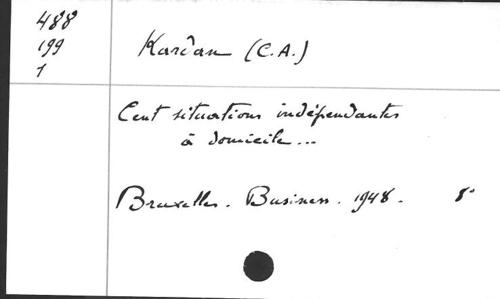 488
199
1
Kardan (C.A.)
Cent situations indépendantes
à domicile...
Bruxelles. Business. 1948. 8°